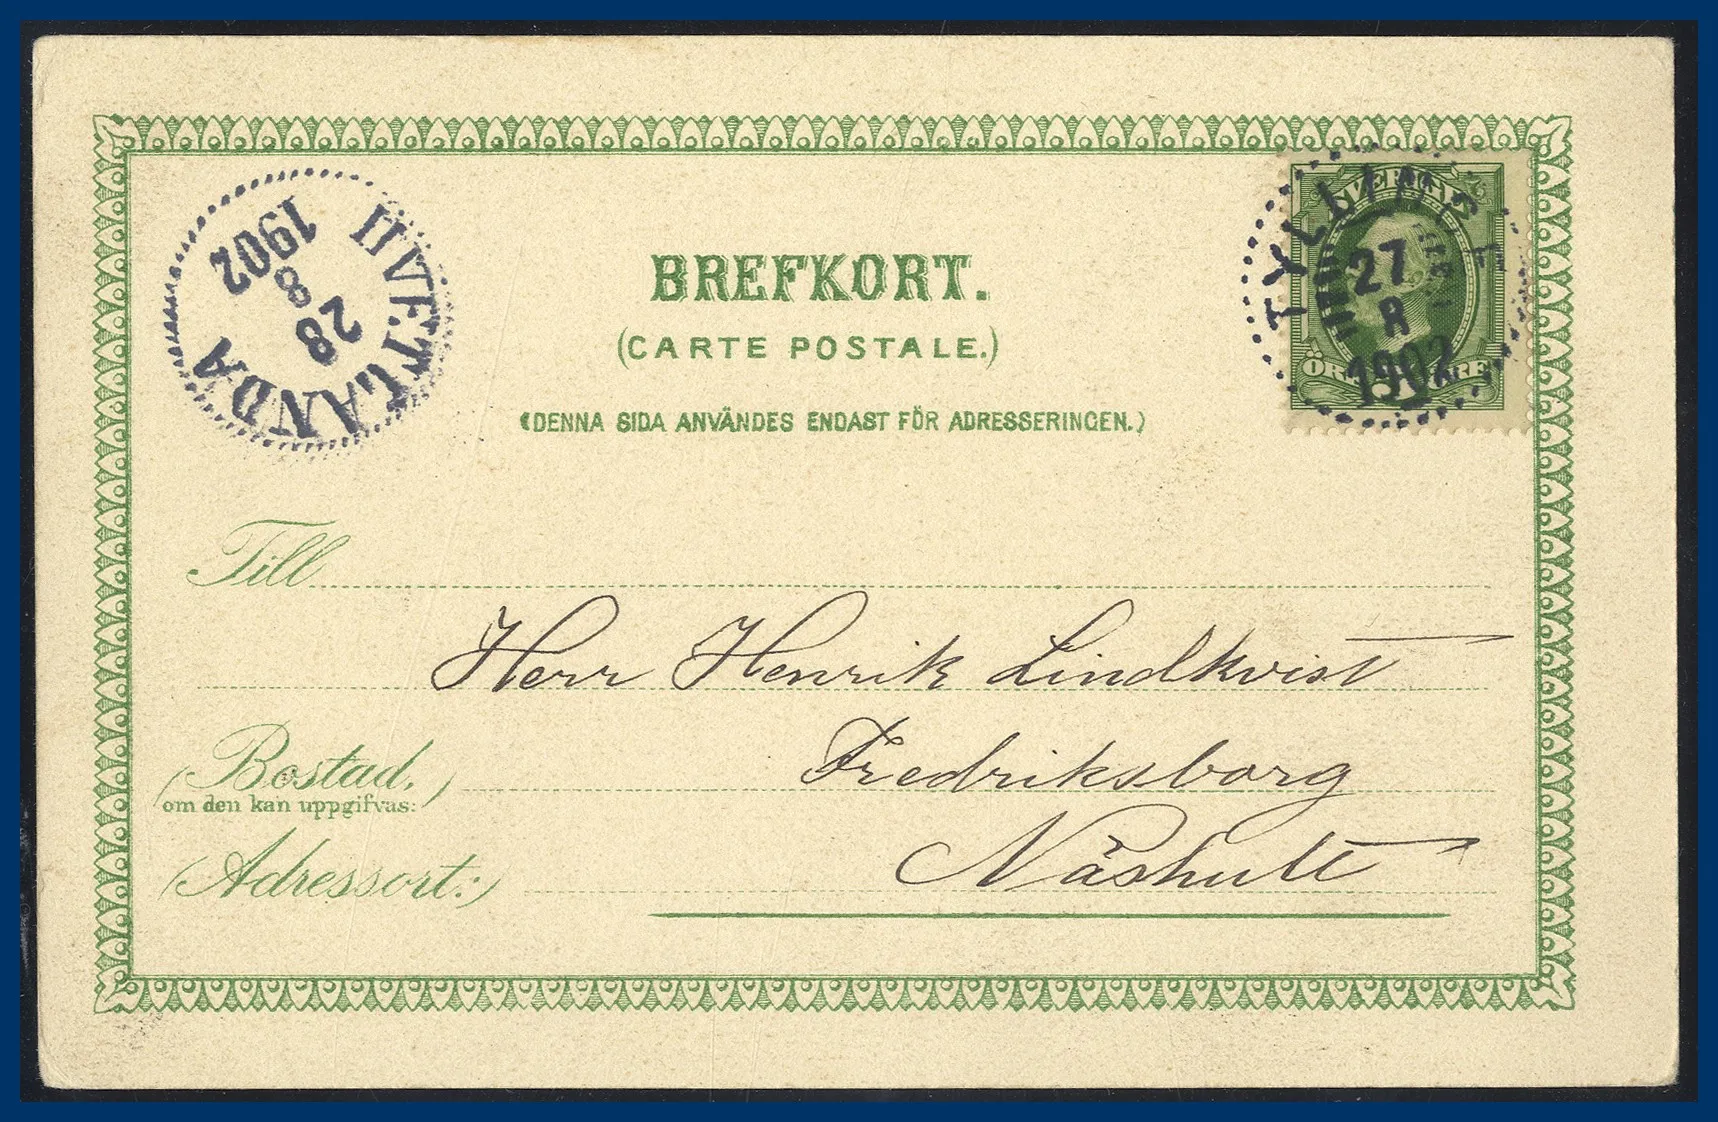 HVETLANDA
28
8
1902
SVERIGE
27
8
1902
ÖRE ÖRE
BREFKORT.
(CARTE POSTALE.)
(DENNA SIDA ANVÄNDES ENDAST FÖR ADRESSERINGEN.)
Till
Herr Henrik Lindkvist
(Bostad,
om den kan uppgifvas:)
Fredriksborg
(Adressort:)
Näshult